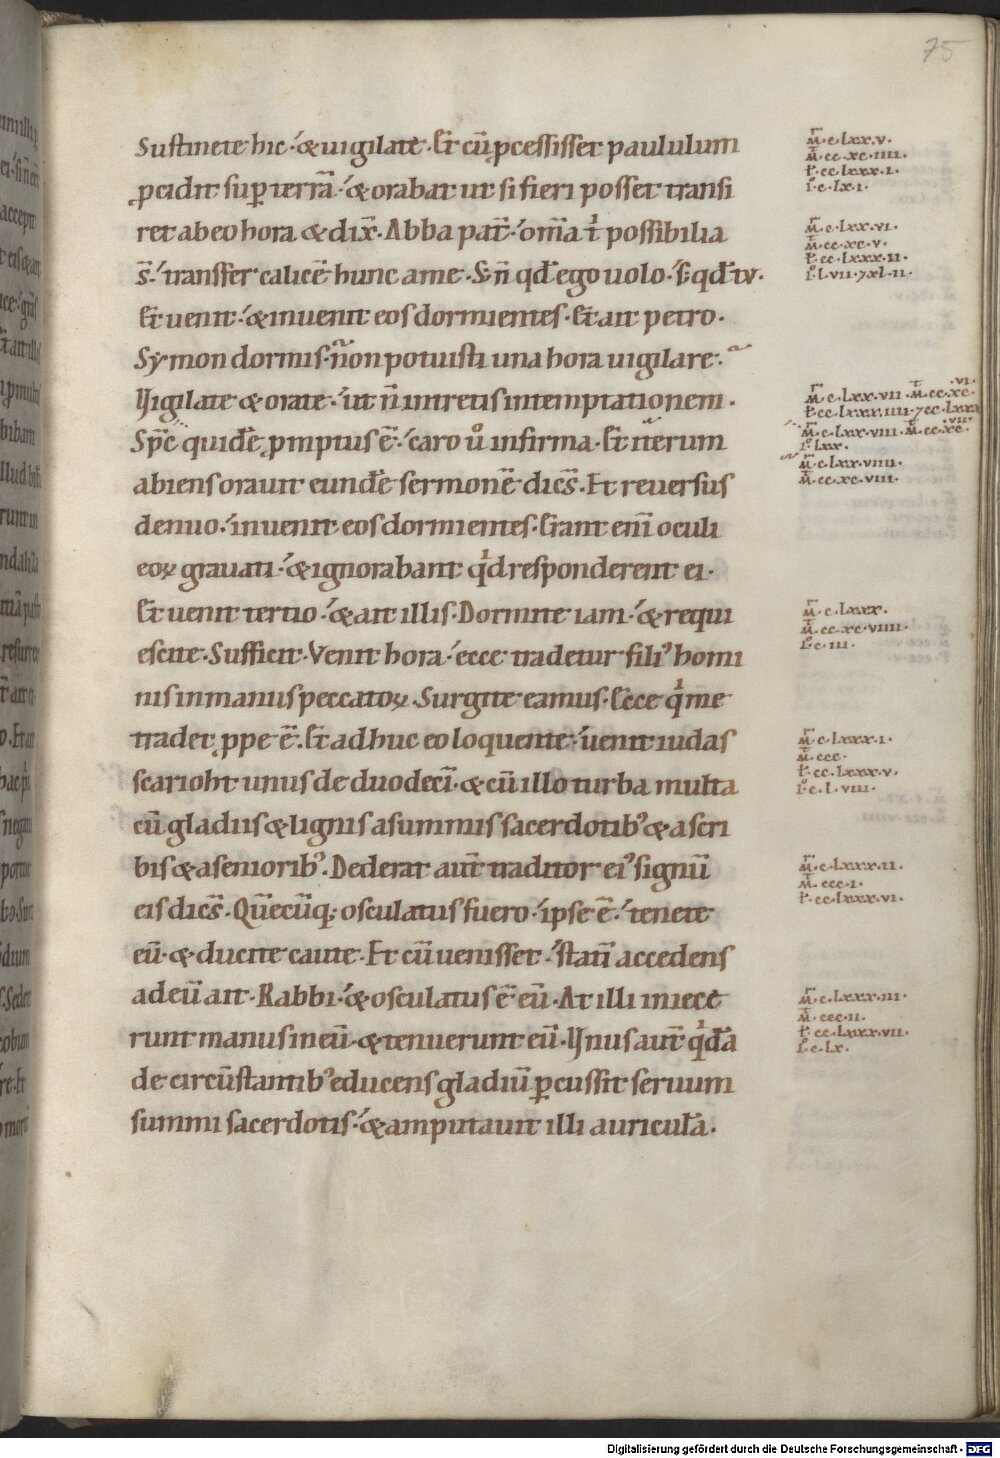 75
Sustinete hic·&uigilate·Et cū p̱cessisset paululum
p̱cidit sup̱ terrā·&orabat ut si fieri posset transi
ret abeo hora &dix̄·Abba pat̄·om̄a t̍ possibilia
s̄·transfer calicē hunc ame·S; n̄ qđ ego uolo·s; qđ tu·
Et uenit·&inuenit eos dormientes·Et ait petro·
Symon dormis·n̄on potuisti una hora uigilare·
Uigilate &orate·ut n̄ intretis intemptationem·
Sp̄c quidē p̱mptus ē·caro u͛o infirma·Et iterum
abiens orauit eundē sermonē dic̄s·Et reuersus
denuo·inuenit eos dormientes·Erant enī oculi
eoꝝ grauati·&ignorabant q̍d responderent ei·
Et uenit tertio·&ait illis·Dormite iam·&requi
escite·Sufficit·Venit hora·ecce tradetur fili᾽ homi
nis in manus peccatoꝝ·Surgite eamus·Ecce q̍ me
tradet p̱pe ē·Et adhuc eo loquente·uenit iudas
scarioht unus de duodecī·&cū illo turba multa
cū gladiis &lignis asummis sacerdotib᾽ &ascri
bis &aseniorib᾽·Dederat aut̄ traditor ei᾽ signū
eis dic̄s·Quēcūq; osculatus fuero·ipse ē·tenete
eū·&ducite caute·Et cū uenisset·statī accedens
adeū ait·Rabbi·&osculatus ē eū·At illi iniece
runt manus in eū·&tenuerunt eū·Unus aut̄ q̍dā
de circūstantib᾽ educens gladiū p̱cussit seruum
summi sacerdotis·&amputauit illi auriculā·
M̄·c·lxx·v·
M̄·cc·xc·iiii·
L̄·cc·lxxx·i·
I̊·c·lx·i·
M̄·c·lxx·vi·
M̄·cc·xc·v·
L̄·cc·lxxx·ii·
I̊·l·vii·⁊xl·ii·
M̄·c·lxx·vii·M̄·cc·xc·vi·
L̄·cc·lxxx·iiii·⁊cc·lxxx
M̄·c·lxx·viii·M̄·cc·xc·vii·
I̊·lxx·
M̄·c·lxx·viiii·
M̄·cc·xc·viii·
M̄·c·lxxx·
M̄·cc·xc·viiii·
I̊·c·iii·
M̄·c·lxxx·i·
M̄·ccc·
L̄·cc·lxxx·v·
I̊·c·l·viii·
M̄·c·lxxx·ii·
M̄·ccc·i·
L̄·cc·lxxx·vi·
M̄·c·lxxx·iii·
M̄·ccc·ii·
L̄·cc·lxxx·vii·
I̊·c·lx·
Digitalisierung gefördert durch die Deutsche Forschungsgemeinschaft · DFG